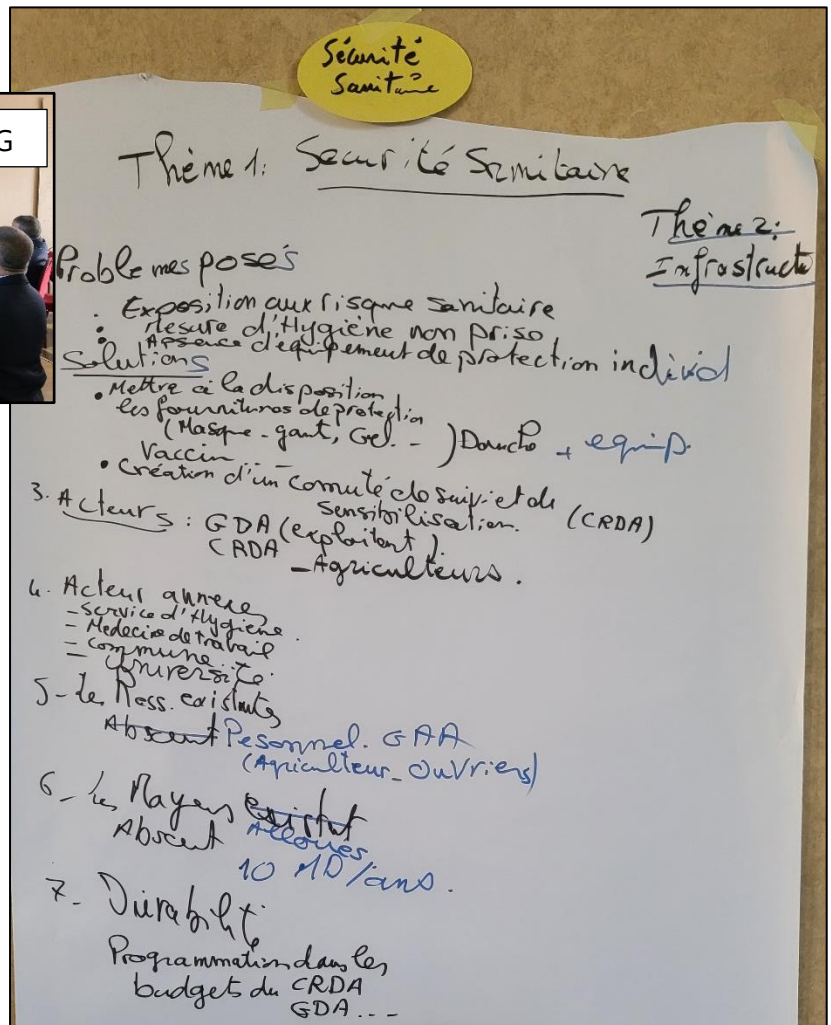 Sécurité
Sanitaire
G
Thème 1: Securité Sanitaire
Thème 2:
Infrastructu
Problemes posés
• Exposition aux risque sanitaire
• Mesure d'Hygiène non priso
• Apsence d'equipement de protection individ
Solutions
• Mettre à la disposition
les fournitures de protection
(Masque - gant, Gel. - ) Douche + equip.
Vaccin - -
• Création d'un comuté de suivi et de
sensibilisation. (CRDA)
3. Acteurs : GDA (exploitant).
CRDA
- Agriculteurs.
4. Acteur annexes
- Service d'Hygiène.
- Medecine de travail
- Commune.
- Université.
5 - Les Ress. existantes
Absent Pesonnel. GAA
(Agriculteur - Ouvriers)
6 - Les Moyens existant
Absent Alloués
10 MD/ans.
7 - Durabilité
Programmation dans les
budgets du CRDA
GDA...